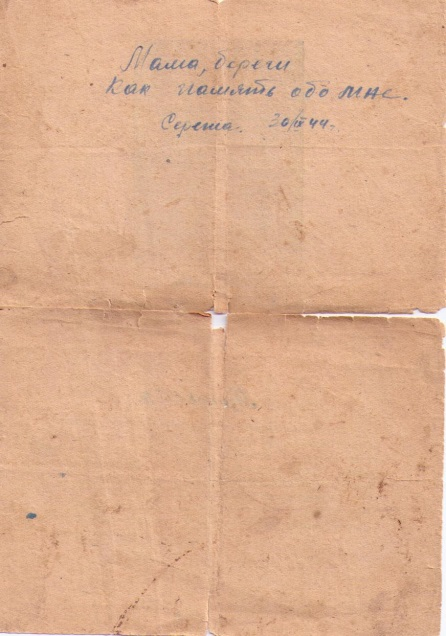 Мама, береги
Как память обо мне.
Сережа. 30/II 44.